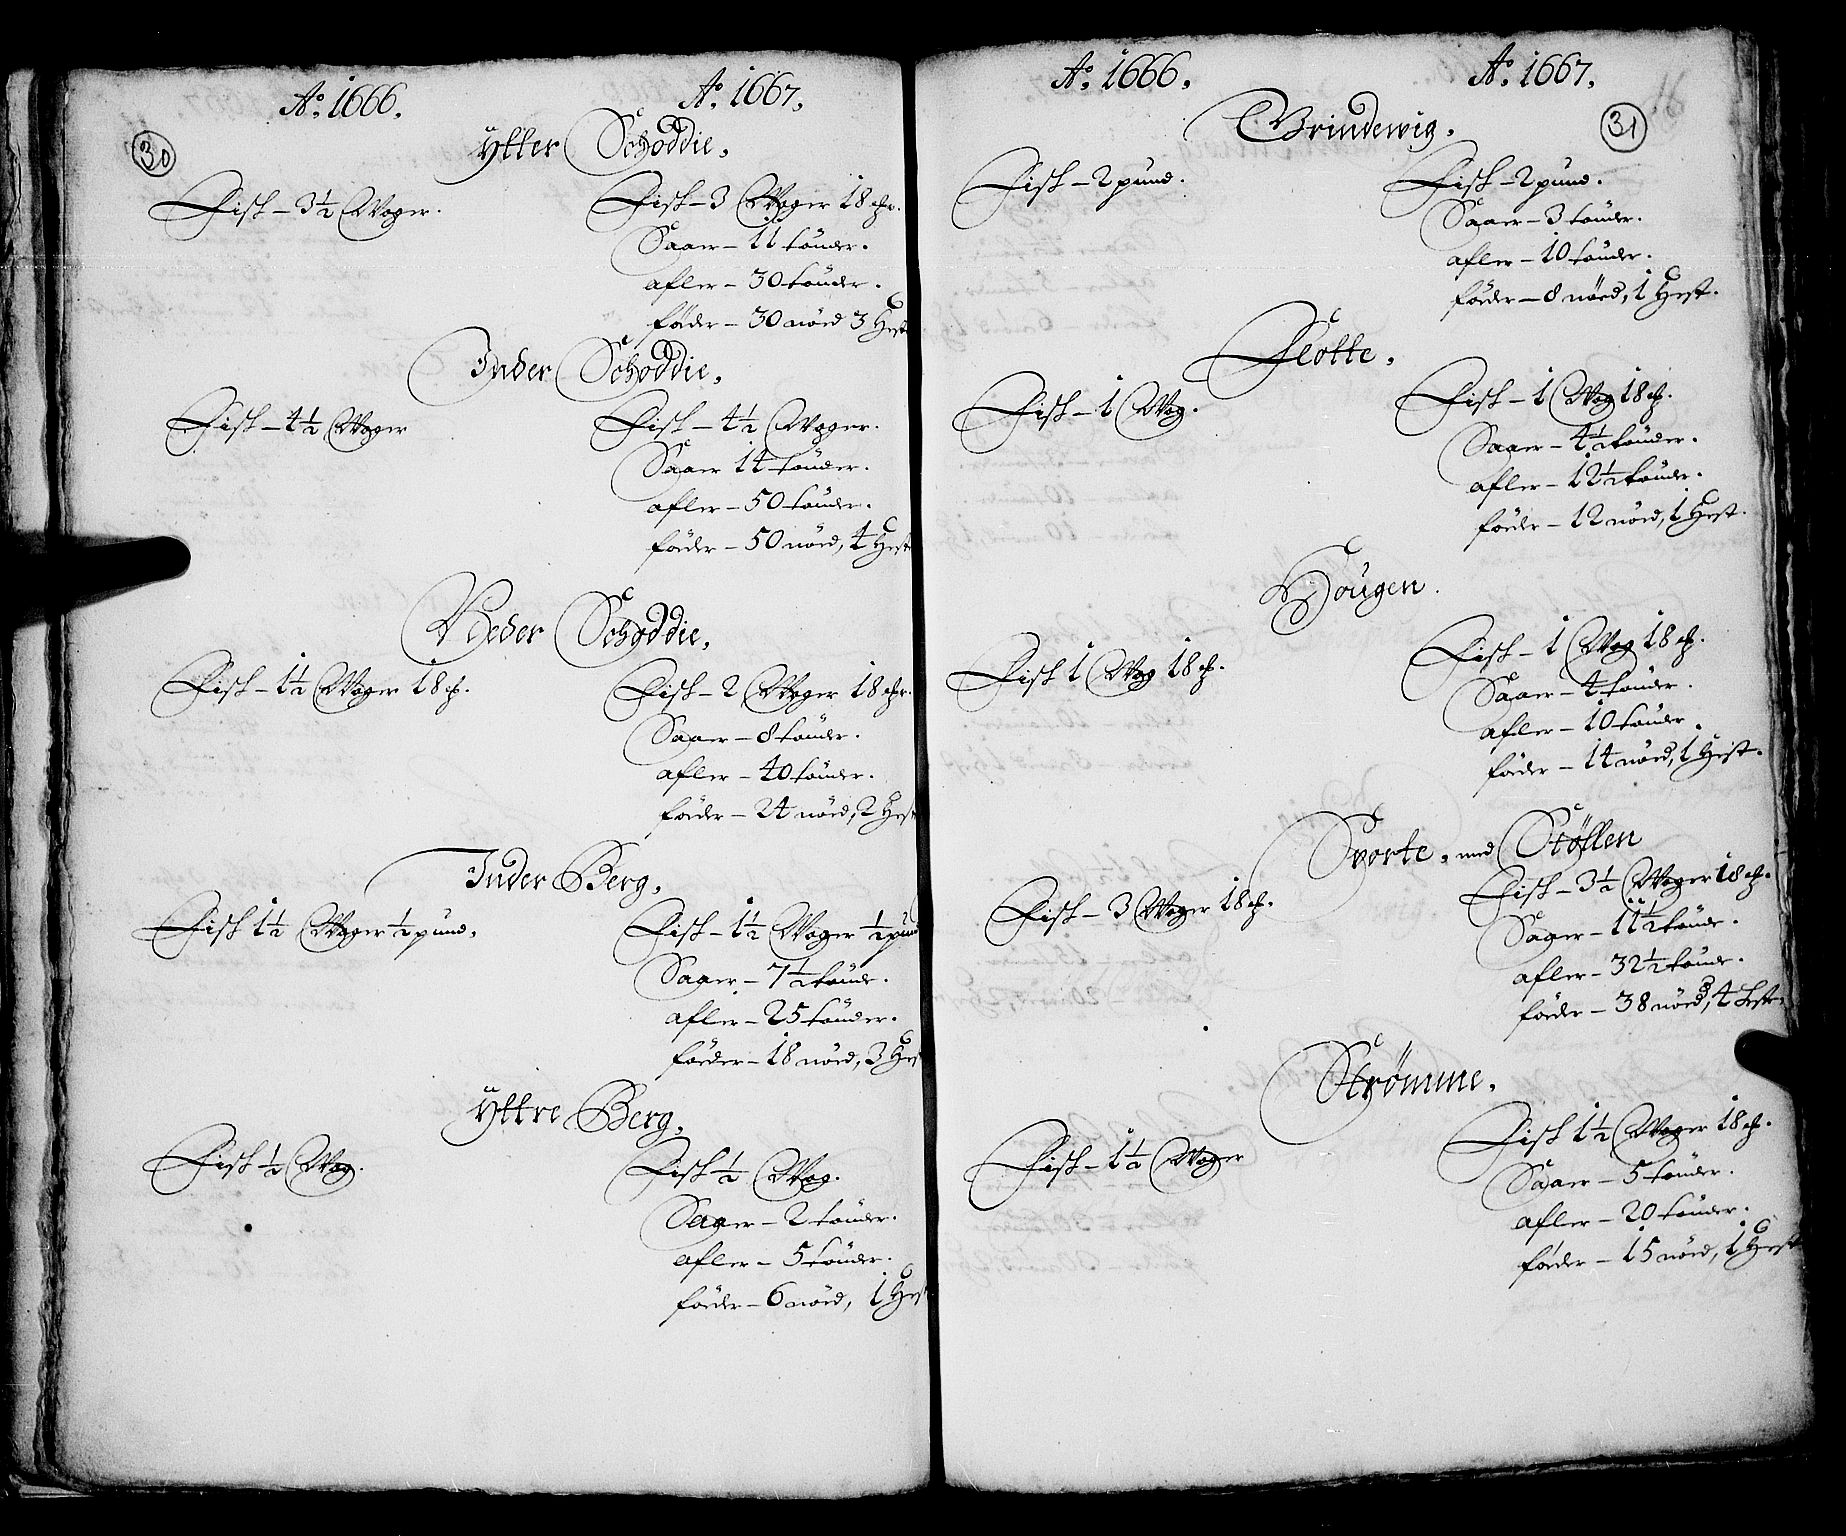 Ao. 1666. Ao. 1667.
30
Ytter Schoddie.
Fisk – 3½ Woger. Fisk – 3 Woger 18 
Saaer – 11 tönder.
afler – 30 tönder.
föder – 30 nöed 3 Hest
Inder Schoddie.
Fisk – 4½ Woger Fisk – 4½ Woger.
Saaer 14 tönder.
afler – 50 tönder.
föder – 50 nöed, 4 Hest
Neder Schoddie.
Fisk – 1½ Woger 18 Fisk – 2 Woger 18
Saaer – 8 tönder.
afler – 40 tönder.
föder – 24 nöed, 2 Hest
Inder Berg.
Fisk 1½ Woger ½ pund. Fisk – 1½ Woger ½ pund
Saaer – 7½ tönde.
afler – 25 tönder.
föder – 18 nöed, 3 Hest
Yttre Berg.
Fisk ½ Wog. Fisk ½ Wog.
Saaer – 2 tönder.
afler – 5 tönder.
föder – 6 nöed, 1 Hest
Ao. 1666. Ao. 1667.
31
Grindewig.
Fisk – 2 pund. Fisk – 2 pund.
Saaer – 3 tönder.
afler – 10 tönder.
föder – 8 nöed, 1 Hest.
Flotte.
Fisk – 1 Wog. Fisk – 1 Wog 18
Saaer – 4½ tönder.
afler – 12½ tönder.
föder – 12 nöed, 1 Hest.
Hougen.
Fisk 1 Wog 18 Fisk – 1 Wog 18
Saaer – 4 tönder.
afler – 10 tönder.
föder – 14 nöed, 1 Hest.
Sporte. med Stöllen
Fisk – 3 Woger 18 Fisk – 3½ Woger 18
Saaer – 11½ tönde.
afler – 32½ tönde.
föder – 38 nöed, 4 Hest.
Strømme.
Fisk – 1½ Woger Fisk 1½ Woger 18
Saaer – 5 tönder.
afler – 20 tönder.
föder – 15 nöed, 1 Hest